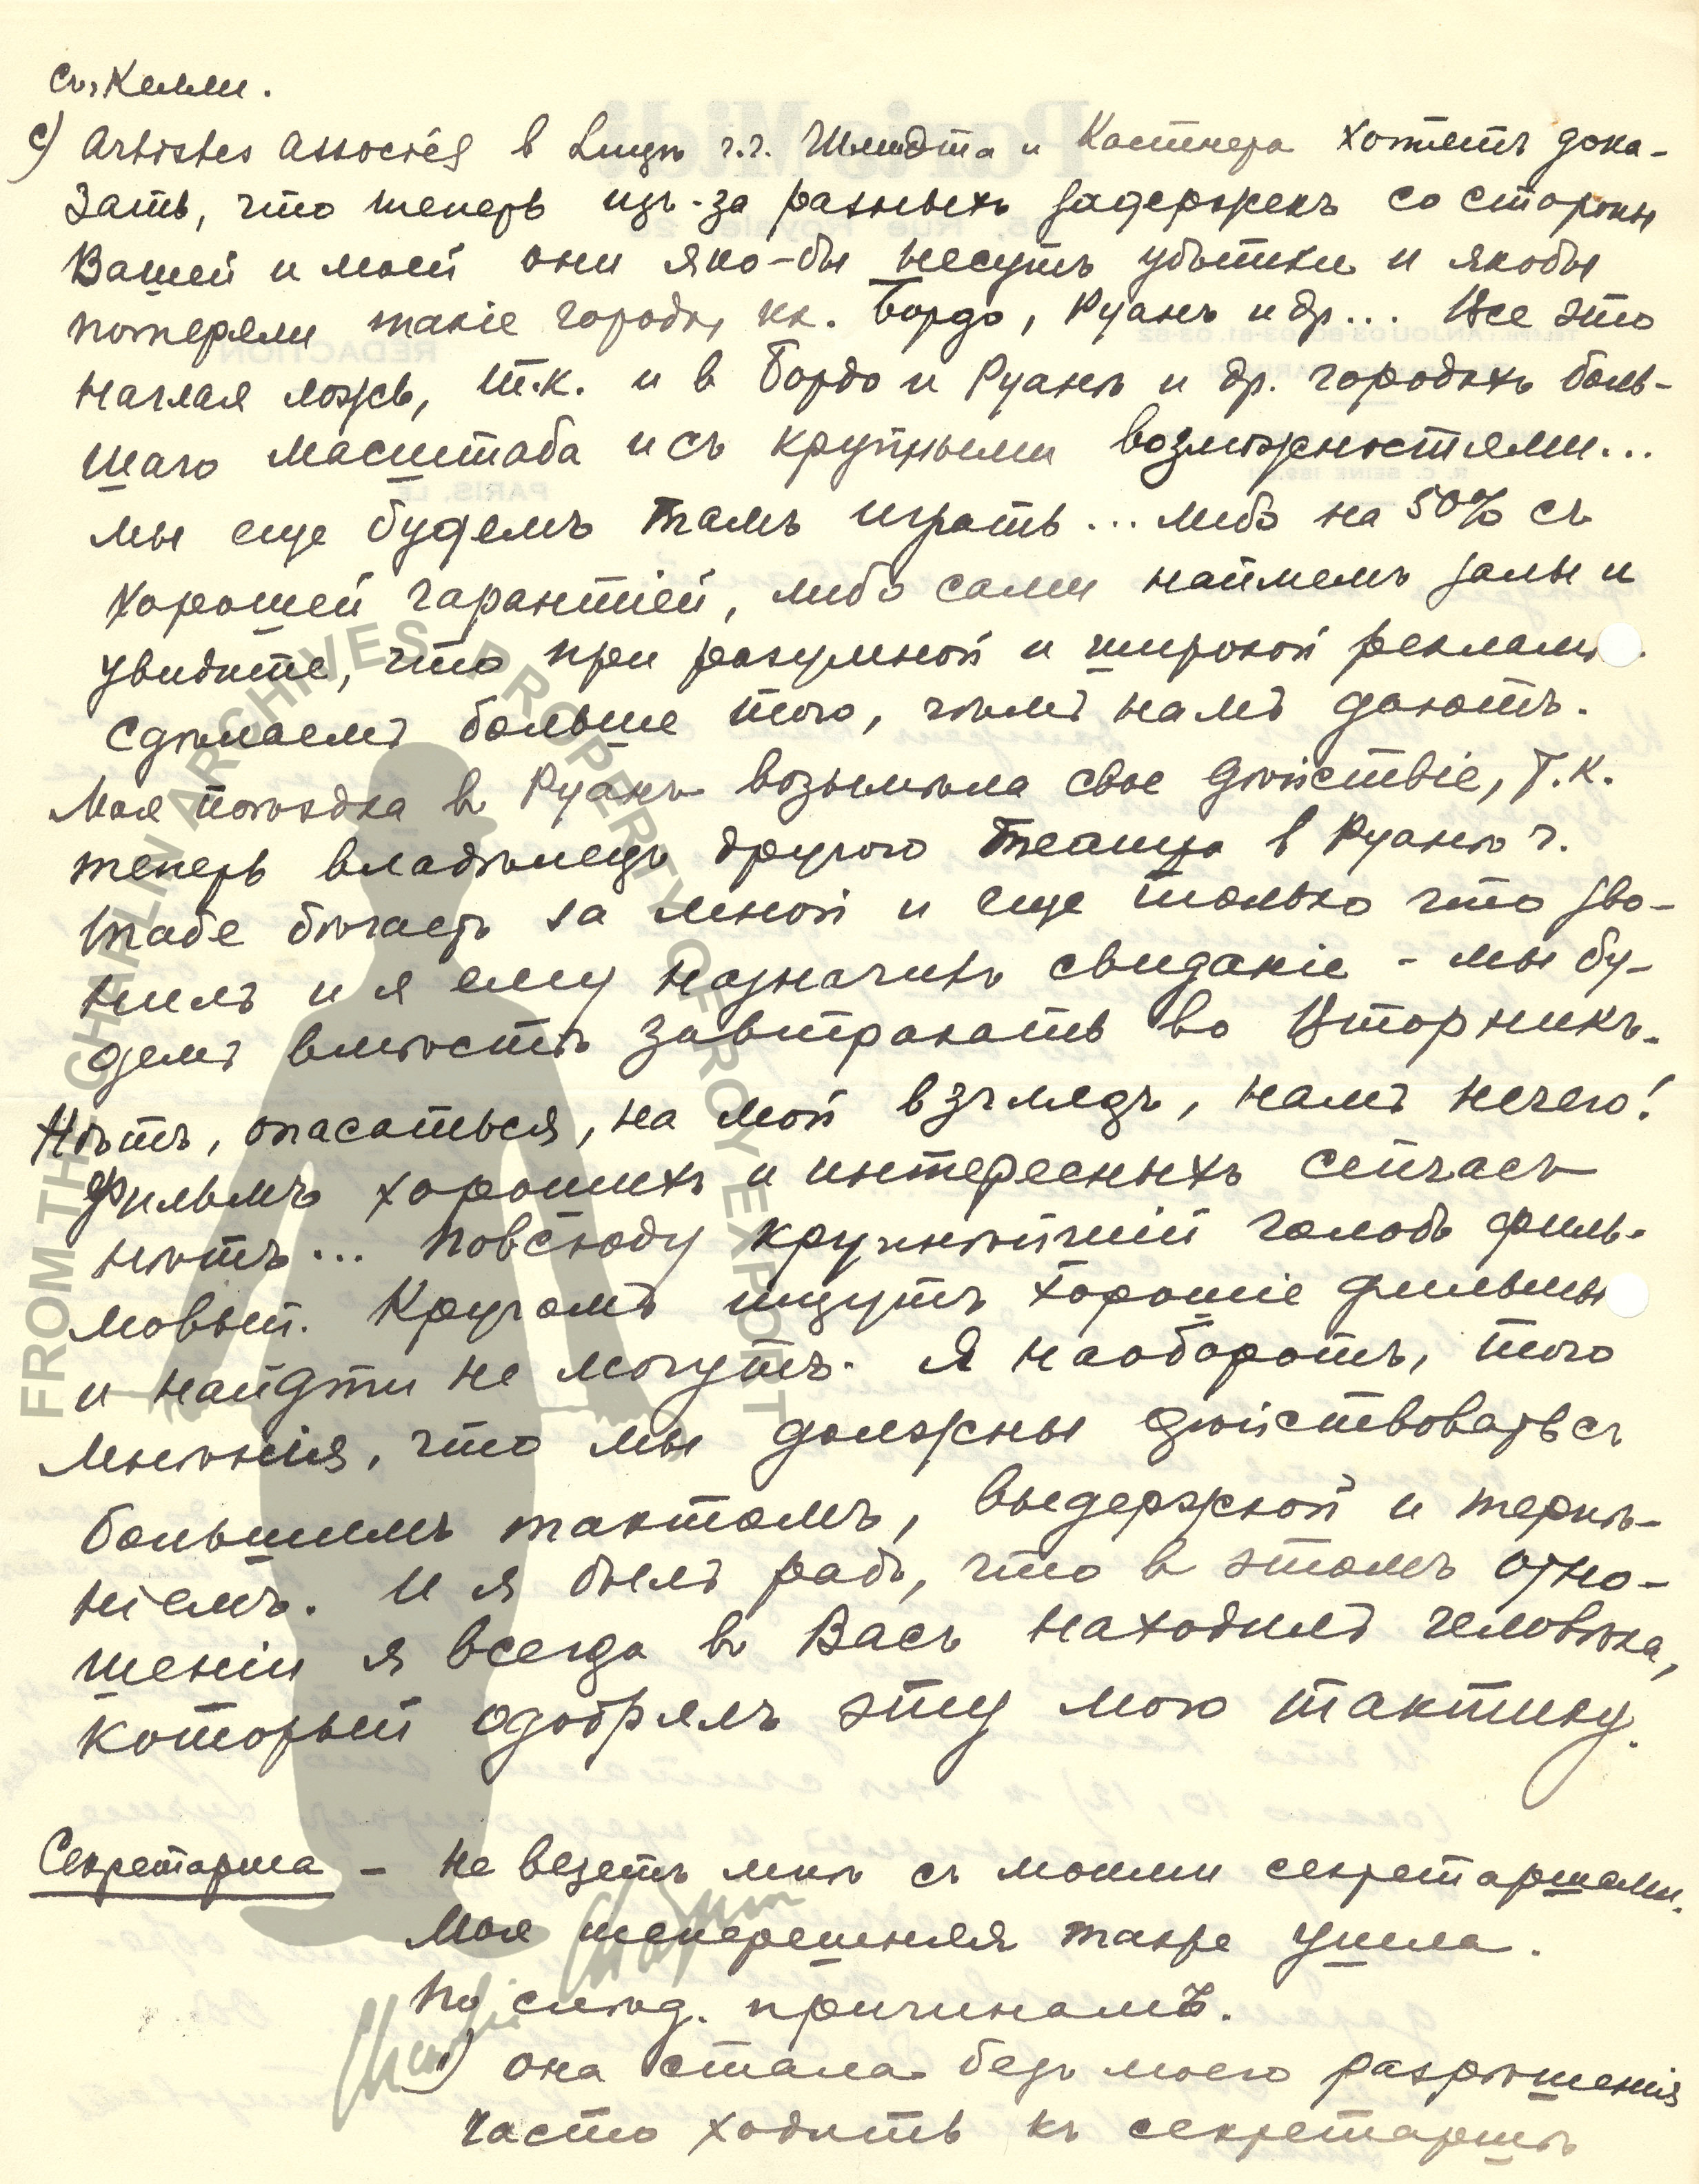 съ Келли.
c) Artistes Associés в Лицѣ г.г. Шмидта и Кастнера хотятъ дока-
зать, что теперь изъ-за разныхъ задержекъ со стороны
Вашей и моей они яко-бы несутъ убытки и якобы
потеряли такіе города, кк. Бордо, Руанъ и др... Все это
наглая ложь, т.к. и в Бордо и Руанѣ и др. городахъ боль-
шаго масштаба и съ крупными возможностями...
мы еще будемъ тамъ играть... либо на 50% съ
хорошей гарантіей, либо сами наймемъ залы и
увидите, что при разумной и широкой рекламѣ
сдѣлаемъ больше того, чѣмъ намъ даютъ.
Моя поѣздка в Руанъ возымѣла свое дѣйствіе, т.к.
теперь владѣлецъ другого театра в Руанѣ г.
бѣгаетъ за мной и еще только что зво-
нилъ и я ему назначилъ свиданіе - мы бу-
демъ вмѣстѣ завтракать во Вторникъ.
Нѣтъ, опасаться, на мой взглядъ, намъ нечего!
Фильмъ хорошихъ и интересныхъ сейчасъ
нѣтъ... Повсюду крупнѣйшій голодъ филь-
мовый. Кругомъ ищутъ хорошіе фильмы
и найдти не могутъ. Я наоборотъ, того
мнѣнія, что мы должны дѣйствовать съ
большимъ тактомъ, выдержкой и терпѣ-
ніемъ. И я былъ радъ, что в этомъ отно-
шеніи я всегда в Васъ находилъ человѣка,
который одобрялъ эту мою тактику.
Секретарша - не везетъ мнѣ съ моими секретаршами.
Моя теперешняя также ушла.
По слѣд. причинамъ.
1) она стала безъ моего разрѣшенія
часто ходить къ секретаршѣ
FROM THE CHARLIN ARCHIVES PROPERTY OF ROY EXPORT